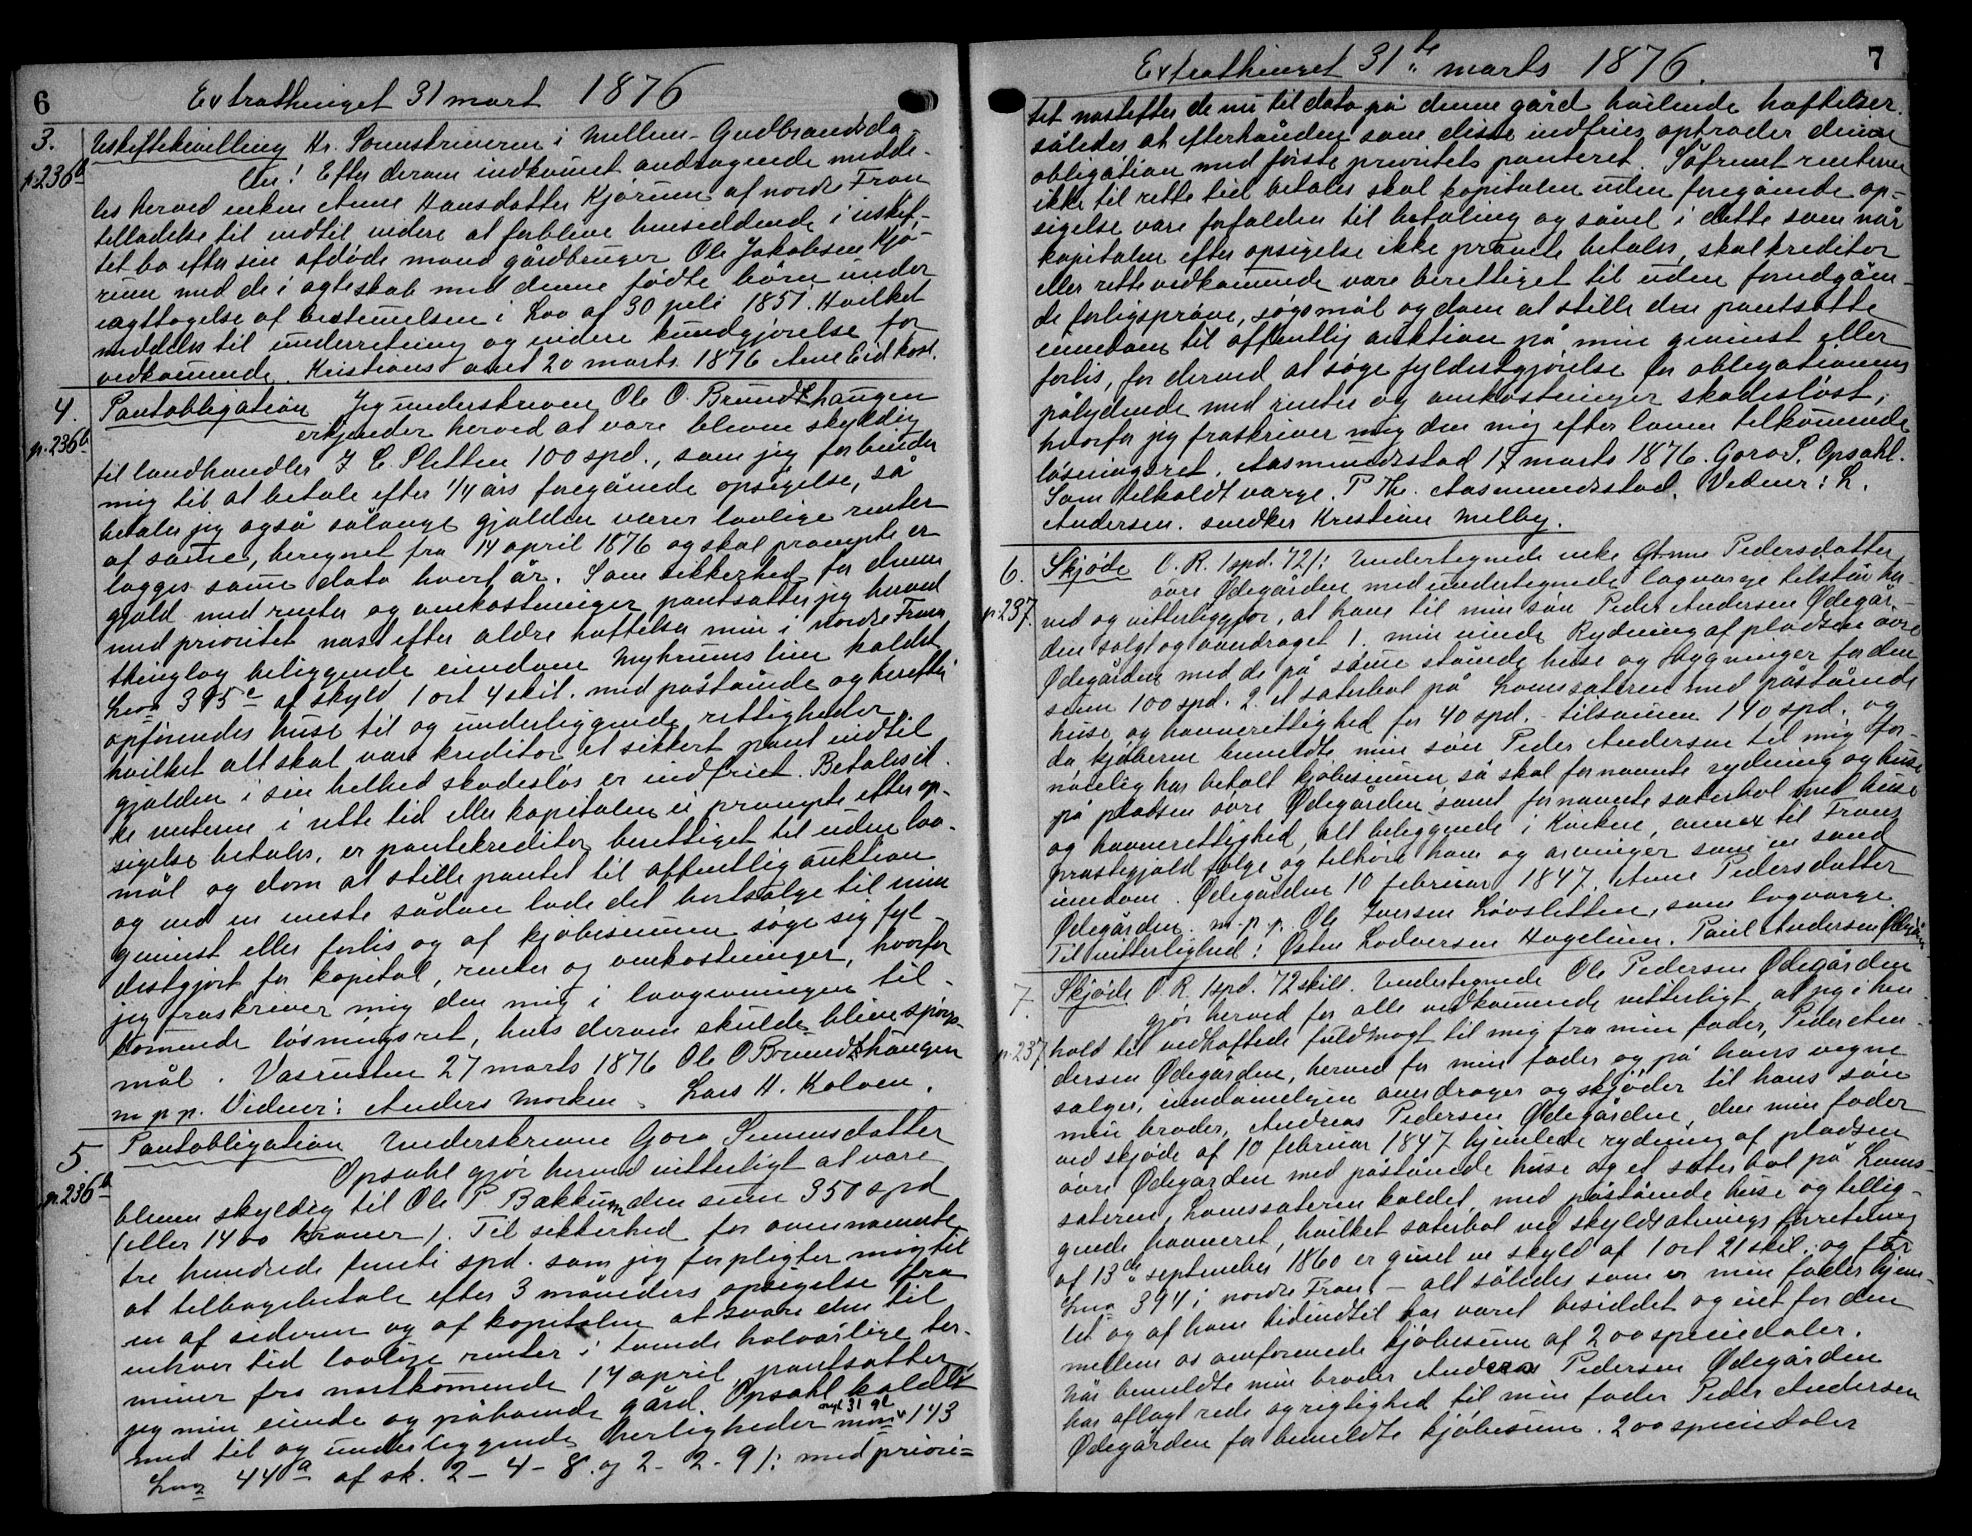 6
Extrathinget 31 mart 1876
3.
p.236b
Uskiftebevilling Hr. Sorenskriveren i Mellem-Gudbrandsda-
len! Efter derom indkommet andragende medde-
les herved enken Anne Hansdatter Kjørum af nordre Fron
tilladelse til indtil videre at forblive hensiddende i uskif-
tet bo efter sin afdøde mand gårdbruger Ole Jakobsen Kjø-
rum med de i ægteskab med denne fødte børn under
iagttagelse af bestemmelsen i Lov af 30 juli 1851. Hvilket
meddeles til underretning og videre kundgjørelse for
vedkommende. Kristians amt 20 marts 1876 Arne Eid kost.
4.
p.236b
Pantobligation Jeg underskreven Ole O. Brundtshaugen
erkjender herved at være bleven skyldig
til landhandler J C Pletten 100 spd., som jeg forbinder
mig til at betale efter 1/4 års foregående opsigelse, så
betaler jeg også sålænge gjælden varer lovlige renter
af samme, beregnet fra 14 april 1876 og skal prompte er-
lægges samme dato hvert år. Som sikkerhed for denne
gjæld med renter og omkostninger pantsætter jeg herved
med prioritet næst efter ældre hæftelser min i nordre Frons
thinglag beliggende eiendom Myhrumslien kaldet
Lno 395c af skyld 1 ort 4 skil. med påstående og herefter
opførendes huse til og underliggende rettigheder,
hvilket alt skal være kreditor et sikkert pant indtil
gjælden i sin helhed skadesløs er indfriet. Betales ik-
ke renterne i rette tid eller kapitalen ei prompte efter op-
sigelse betales, er pantekreditor berettiget til uden lov-
mål og dom at stille pantet til offentlig auktion
og ved en eneste sådan lade det bortsælge til min
gevinst eller forlis og af kjøbesummen søge sig fyl-
destgjort for kapital, renter og omkostninger, hvorfor
jeg fraskriver mig den mig i lovgivningen til-
kommende løsningsret, hvis derom skulde blive spørgs-
mål. Vasrusten 27 marts 1876 Ole O Brundtshaugen
m p p. Vidner: Anders Morken. Lars H. Kolven.
5.
p.236b
Pantobligation Underskrevne Goro Simensdatter
Opsahl gjør herved vitterligt at være
bleven skyldig til Ole P Bakkum den sum 350 spd
(eller 1400 kroner). Til sikkerhed for ovennævnte
tre hundrede femti spd. som jeg forpligter mig til
at tilbagebetale efter 3 måneders opsigelse fra
en af siderne og af kapitalen at svare den til
enhver tid lovlige renter i tvende halvårlige ter-
miner fra nestkomende 14 april, pantsætter
jeg min eiende og påboende gård. Opsahl kaldet
med til og underliggende herligheder mno 143
Lno 44a af sk. 2-4-8. og 2-2-9/: med priori=
7
Extrathinget 31te marts 1876.
tet næstefter de nu til dato på denne gård hvilende hæftelser
således at efterhånden som disse indfries optræder denne
obligation med første prioritets panteret. Såfremt renterne
ikke til rette tid betales skal kapitalen uden foregående op-
sigelse være forfalden til betaling og såvel i dette som når
kapitalen efter opsigelse ikke præmte betales, skal kreditor
eller rette vedkommende være berettiget til uden forudgåen-
de forligsprøve, søgsmål og dom at stille den pantsatte
eiendom til offentlig auktion på min gevinst eller
forlis, for derved at søge fyldestgjørelse for obligationens
pålydende med renter og omkostninger skadesløst,
hvorfor jeg fraskriver mig den mig efter loven tilkommende
løsningsret. Aasmundstad 17 marts 1876. Goro S. Opsahl.
Som tilkaldt værge. P Th. Aasmundstad. Vidner: L.
Andersen. snedker Kristian Melby.
6.
p.237.
Skjøde O. R. 1 spd. 72/: Undertegnede enke Anne Pedersdatter
øvre Ødegården med undertegnede lagværge tilstår her-
ved og vitterliggjør, at have til min søn Peder Andersen Ødegår-
den solgt og overdraget 1. min eiende Rydning af pladsen øvre
Ødegården med de på samme stående huse og bygninger for den
sum 100 spd. 2. et sæterbol på Lomssæteren med påstående
huse og havnerettighed for 40 spd. - tilsammen 140 spd. og
da kjøberen bemeldte min søn Peder Andersen til mig for-
nøielig har betalt kjøbesummen så skal fornævnte rydning og huse
på pladsen øvre Ødegården samt fornævnte sæterbol med huse
og havnerettighed, alt beliggende i Kvikne, annex til Frons
præstegjæld følge og tilhøre ham og arvinger som en sand
eiendom. Ødegården 10 februar 1847. Anne Pedersdatter
Ødegården. m. p. p. Ole Iversen Løvsletten, som lagværge.
Til vitterlighed: Østen Lodversen Hagelien. Paul Andersen Ødegården
7.
p.237.
Skjøde O. R. 1 spd. 72 skill. Undertegnede Ole Pedersen Ødegården
gjør herved for alle vedkommende vitterligt, at jeg i hen-
hold til vedhæftede fuldmagt til mig fra min fader, Peder An-
dersen Ødegården, herved for min fader og på hans vegne
sælger, eiendomeligen overdrager og skjøder til hans søn
min broder, Andreas Pedersen Ødegården, den min fader
ved skjøde af 10 februar 1847 hjemlede rydning af pladsen
øvre Ødegården med påstående huse og et sæterbol på Loms-
sæteren, Lomssæteren kaldet, med påstående huse og tillig-
gende havneret, hvilket sæterbol ved skyldsætnings forretning
af 13de september 1860 er givet en skyld af 1 ort 21 skil. og får
Lno 394 i nordre Fron - alt således som er min fader hjem-
let og af ham tidindtil har været besiddet og eiet for den
mellem os omforenede kjøbesum af 200 speciedaler.
Når bemeldte min broder Andreas Pedersen Ødegården
har aflagt rede og rigtighed til min fader Peder Andersen
Ødegården for bemeldte kjøbesum. 200 speciedaler